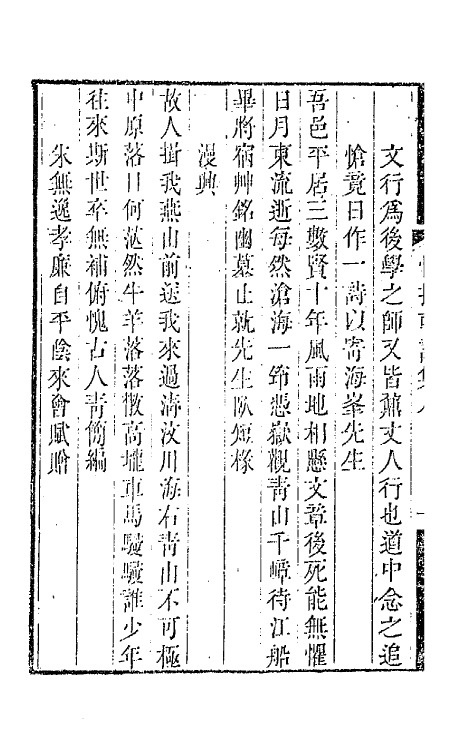 文行爲後學之師又皆鼐丈人行也道中念之追
愴竟日作一詩以寄海峯先生
吾邑平居三數賢十年風雨地相懸文章後死能無懼
日月東流逝每然滄海一筇悲嶽觀靑山千嶂待江船
畢將宿艸銘幽墓止就先生臥短椽
漫興
故人揖我燕山前送我來過淸汶川海右靑山不可極
中原落日何茫然牛羊落落散高壠車馬騣騣誰少年
往來斯世卒無補俯愧古人靑簡編
朱無逸孝廉自平陰來會賦贈